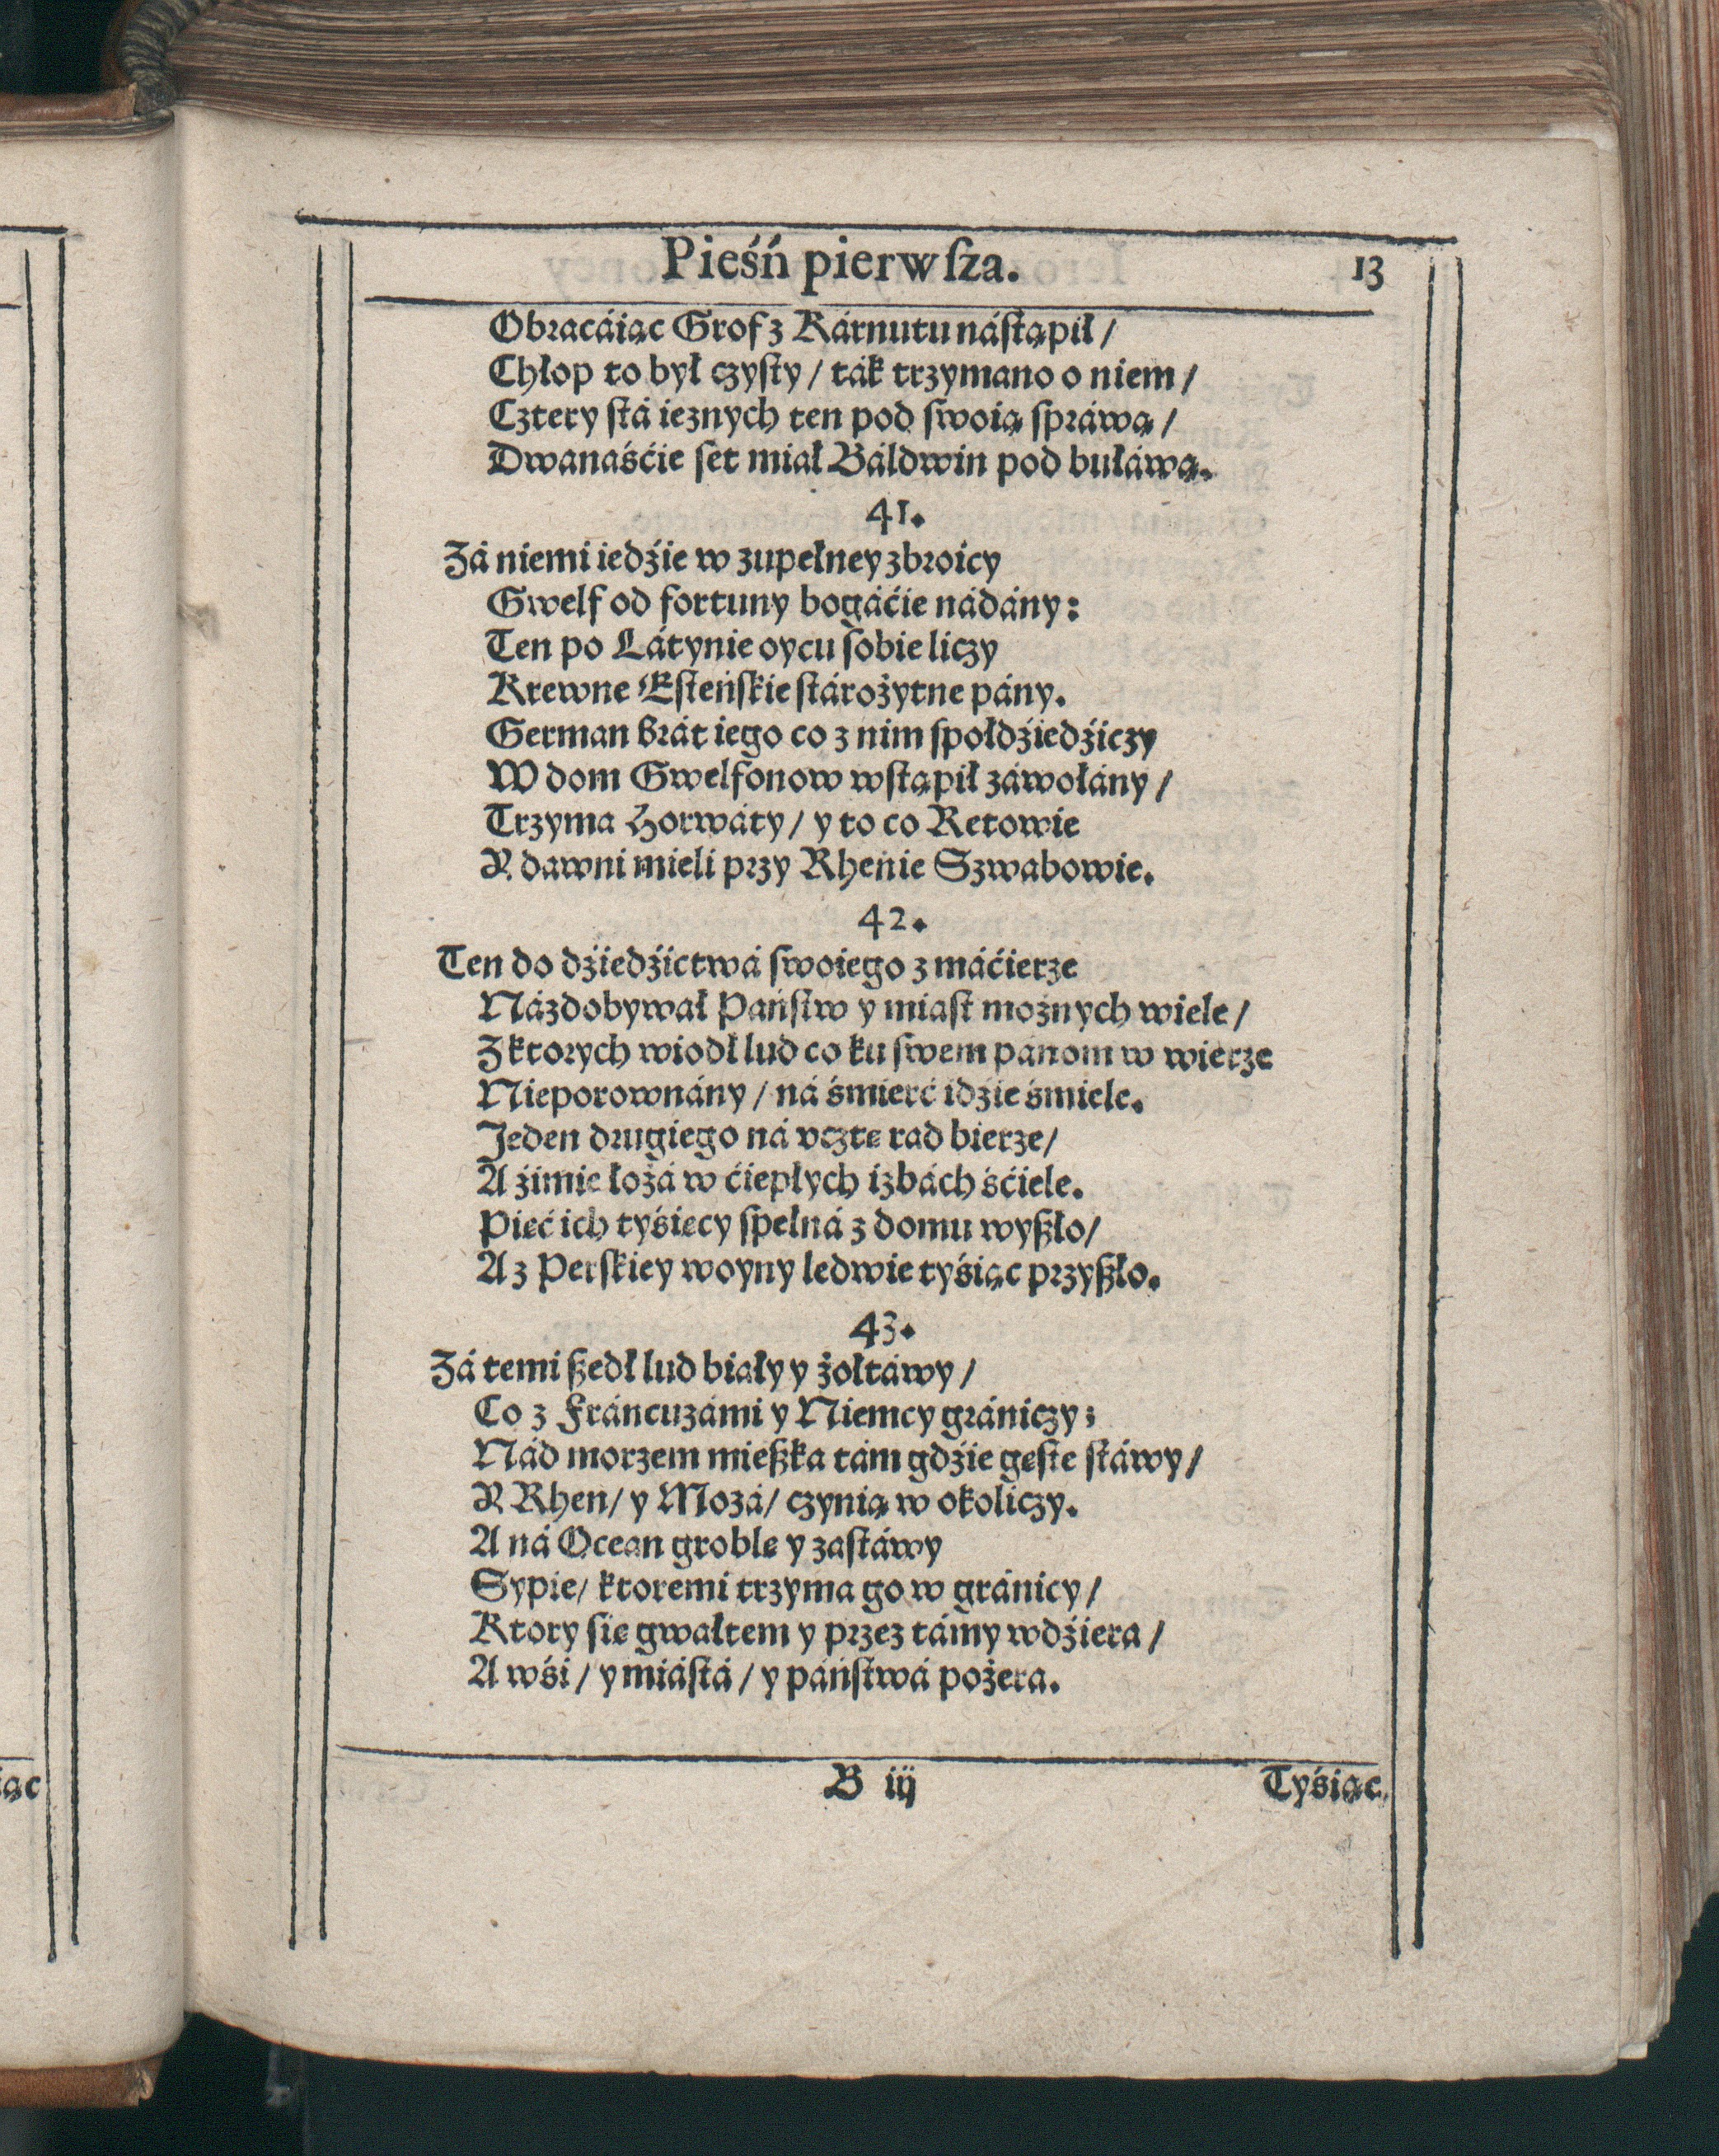 Pieśń pierwſza. 13
Obracáiąc Grof z Kárnutu náſtąpił /
Chłop to był czyſty / ták trzymano o niem /
Cztery ſtá ieznych ten pod ſwoią ſpráwą /
Dwanaśćie ſet miał Báldwin pod buławą.
41.
Zá niemi iedźie w zupełney zbroicy
Gwelf od fortuny bogáćie nádány:
Ten po Látynie oycu ſobie liczy
Krewne Eſteńſkie ſtárożytne pány.
German brát iego co z nim ſpołdźiedźiczy
W dom Gwelfonow wſtąpił záwołány /
Trzyma Horwáty / y to co Retowie
Y dawni mieli przy Rhenie Szwabowie.
42.
Ten do dźiedźictwá ſwoiego z máćierze
Názdobywał Pańſtw y miaſt możnych wiele /
Z ktorych wiodł lud co ku ſwem pánom w wierze
Nieporownány / ná śmierć idźie śmiele.
Jeden drugiego ná vcztę rad bierze /
A źimie łożá w ćiepłych izbách śćiele.
Pięć ich tyśięcy ſpełná z domu wyßło /
A z Perſkiey woyny ledwie tyśiąc przyßło.
43.
Zá temi ßedł lud biały y żołtáwy /
Co z Fráncuzámi y Niemcy grániczy;
Nád morzem mießka tám gdźie gęſte ſtáwy /
Y Rhen / y Mozá / czynią w okoliczy.
A ná Ocean groble y zaſtáwy
Sypie / ktoremi trzyma go w gránicy /
Ktory ſię gwałtem y przez támy wdźiera /
A wśi / y miáſtá / y páńſtwá pożera.
B iij Tyśiąc
iąc